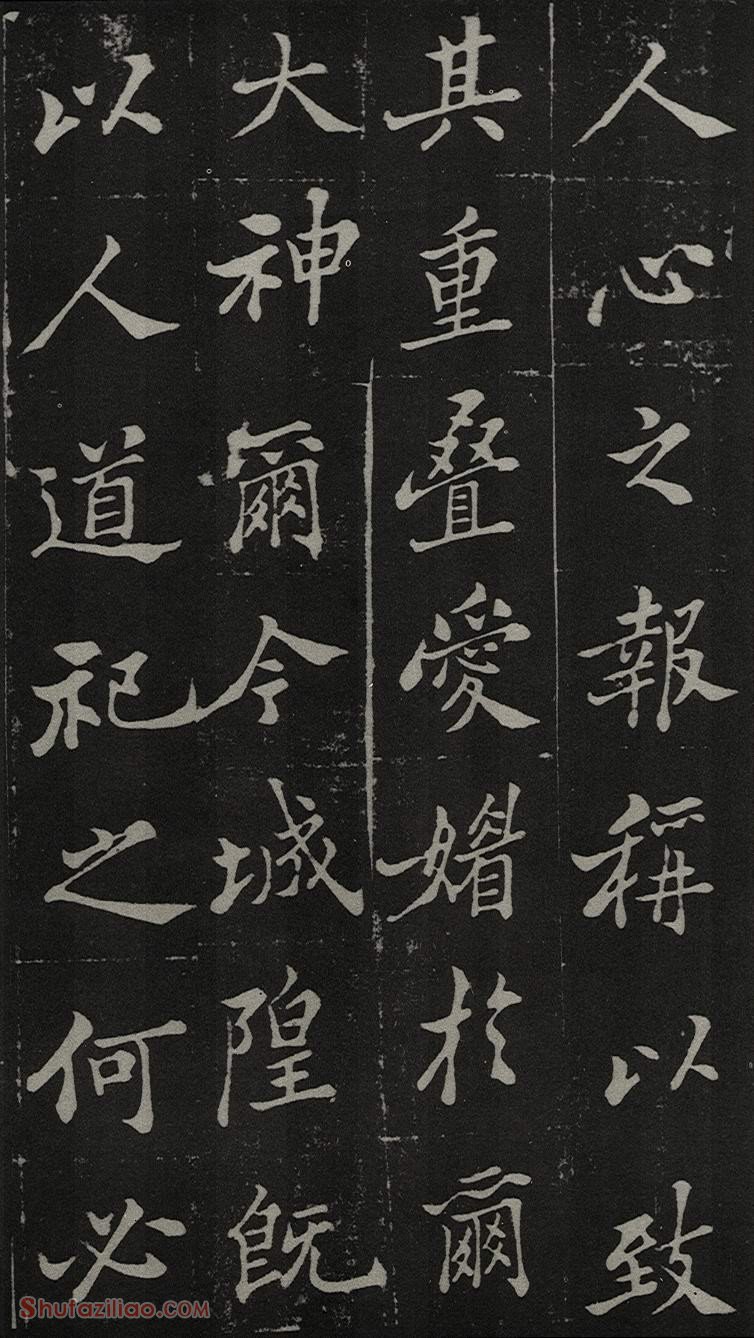 人心之報稱以致
其重疊愛媚於爾
大神爾今城隍既
以人道祀之何必
Shufaziliao.COM